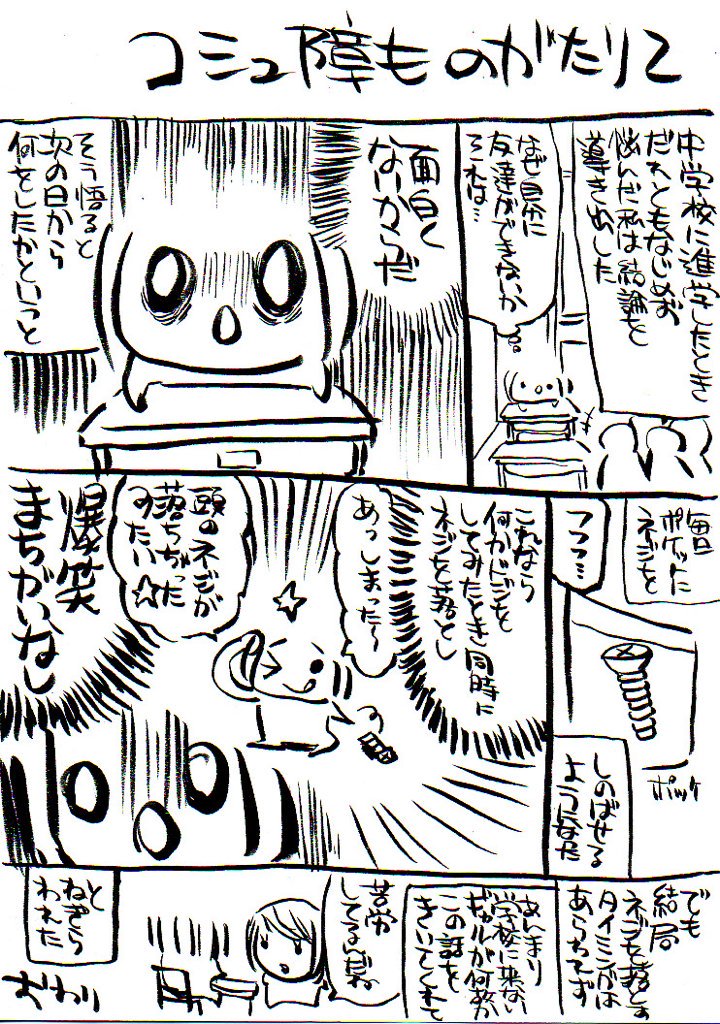 コミュ障ものがたり2
中学校に進学したとき
だれともなじめず
悩んだ私は結論を
導き出した
なぜ自分に
友達ができないか
それは…
面白く
ないからだ
そう悟ると
次の日から
何をしたかというと
毎日
ポケットに
ネジを
フフフ…
ポッケ
しのばせる
ようになった
これなら
何かドジを
してみたとき同時に
ネジを落とし
あっしまった〜
頭のネジが
落ちちゃった
みたい☆
爆笑
まちがいなし
でも
結局
ネジを落とす
タイミングは
あらわれず
あんまり
学校に来ない
ギャルが何故か
この話を
きいてくれて
苦労
してるんだね
と
ねぎら
われた
おわり